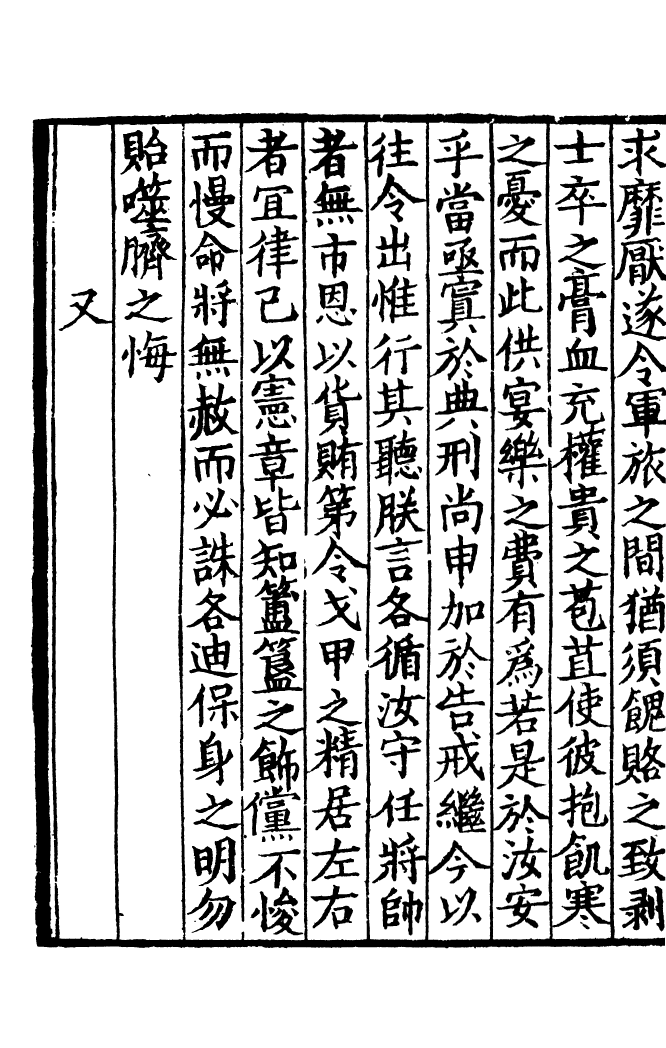 求靡厭遂令軍旅之間猶須餽賂之致剥
士卒之膏血充權貴之苞苴使彼抱飢寒
之憂而此供宴樂之費有爲若是於汝安
乎當亟寘於典刑尚申加於告戒繼今以
往令出惟行其聽朕言各循汝守任將帥
者無市恩以貨賄第令戈甲之精居左右
者冝律己以憲章皆知簠簋之飾儻不悛
而慢命將無赦而必誅各迪保身之明勿
貽噬臍之悔
又